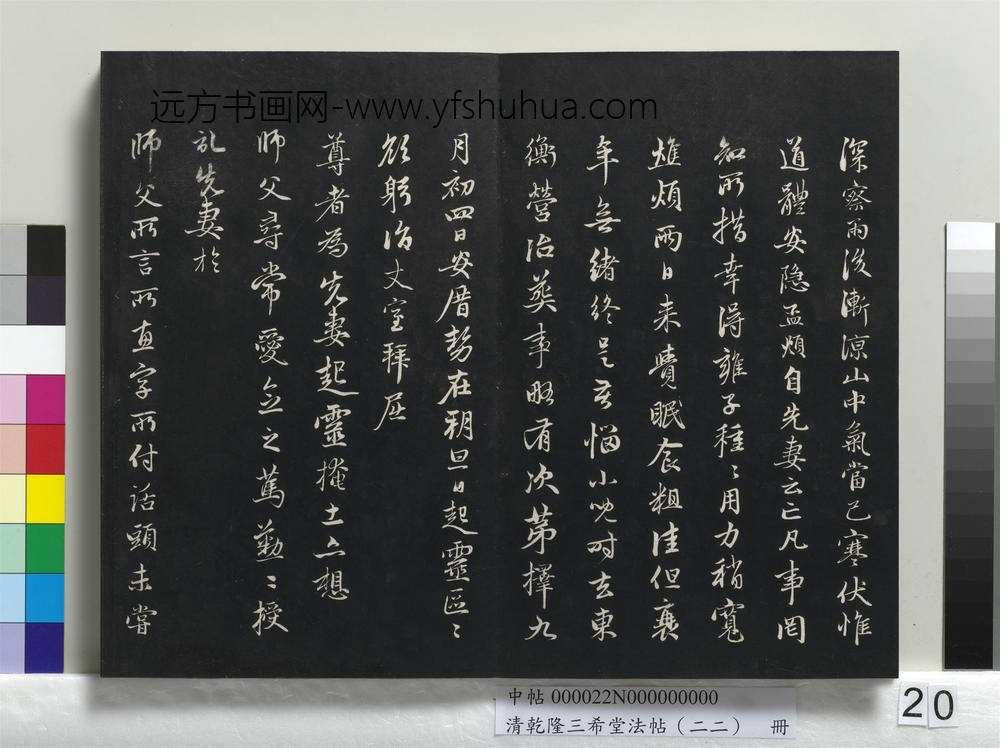 远方书画网-www.yfshuhua.com
深察雨後漸涼山中氣當已寒伏惟
道體安隱孟頫自先妻云亡凡事罔
知所措幸得雍子種〻用力稍寬
燋煩兩日来覺眠食粗佳但衰
年無緒終是苦惱小兒時去東
衡營治葬事略有次第擇九
月初四日安厝勢在朔旦日起靈區〻
欲躬詣丈室拜屈
尊者為先妻起靈掩土亦想
師父尋常愛念之篤勤〻授
記先妻於
師父所言所直字所付話頭未嘗
中帖 000022N000000000
清乾隆三希堂法帖（二二） 冊
20